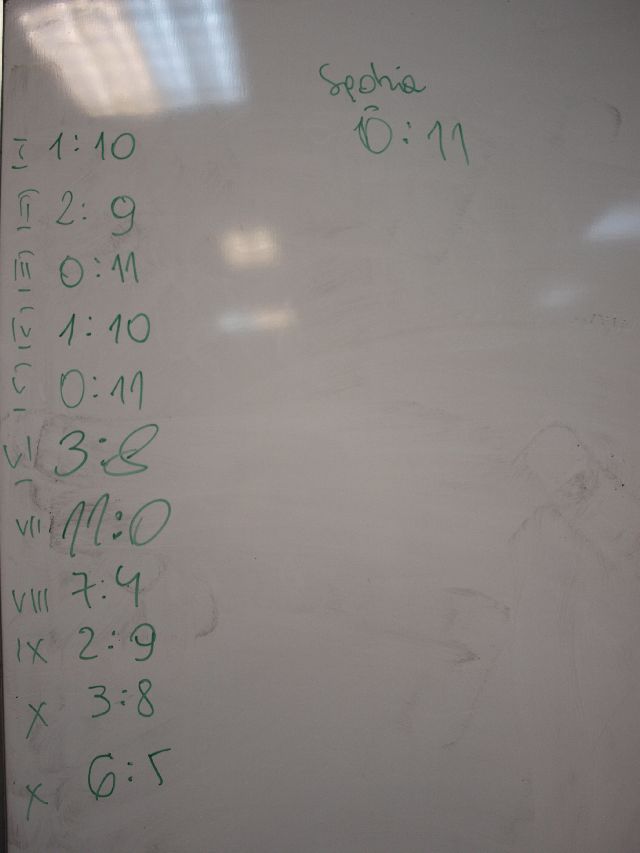 Sędzia
0:11
I 1:10
II 2:9
III 0:11
IV 1:10
V 0:11
VI 3:8
VII 11:0
VIII 7:4
IX 2:9
X 3:8
X 6:5